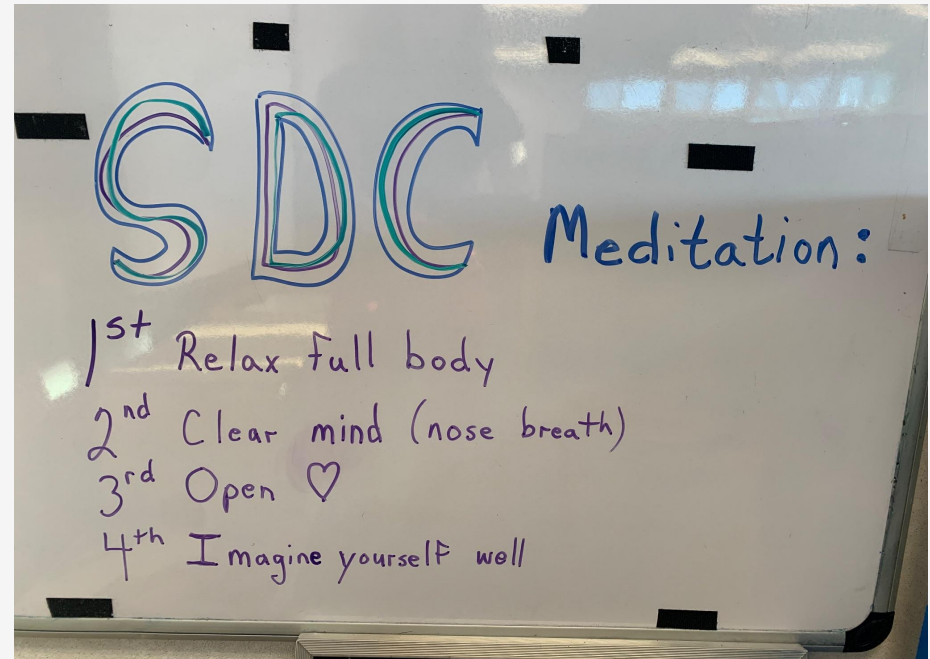 SDC Meditation:
1st Relax full body
2nd Clear mind (nose breath)
3rd Open ♡
4th Imagine yourself well